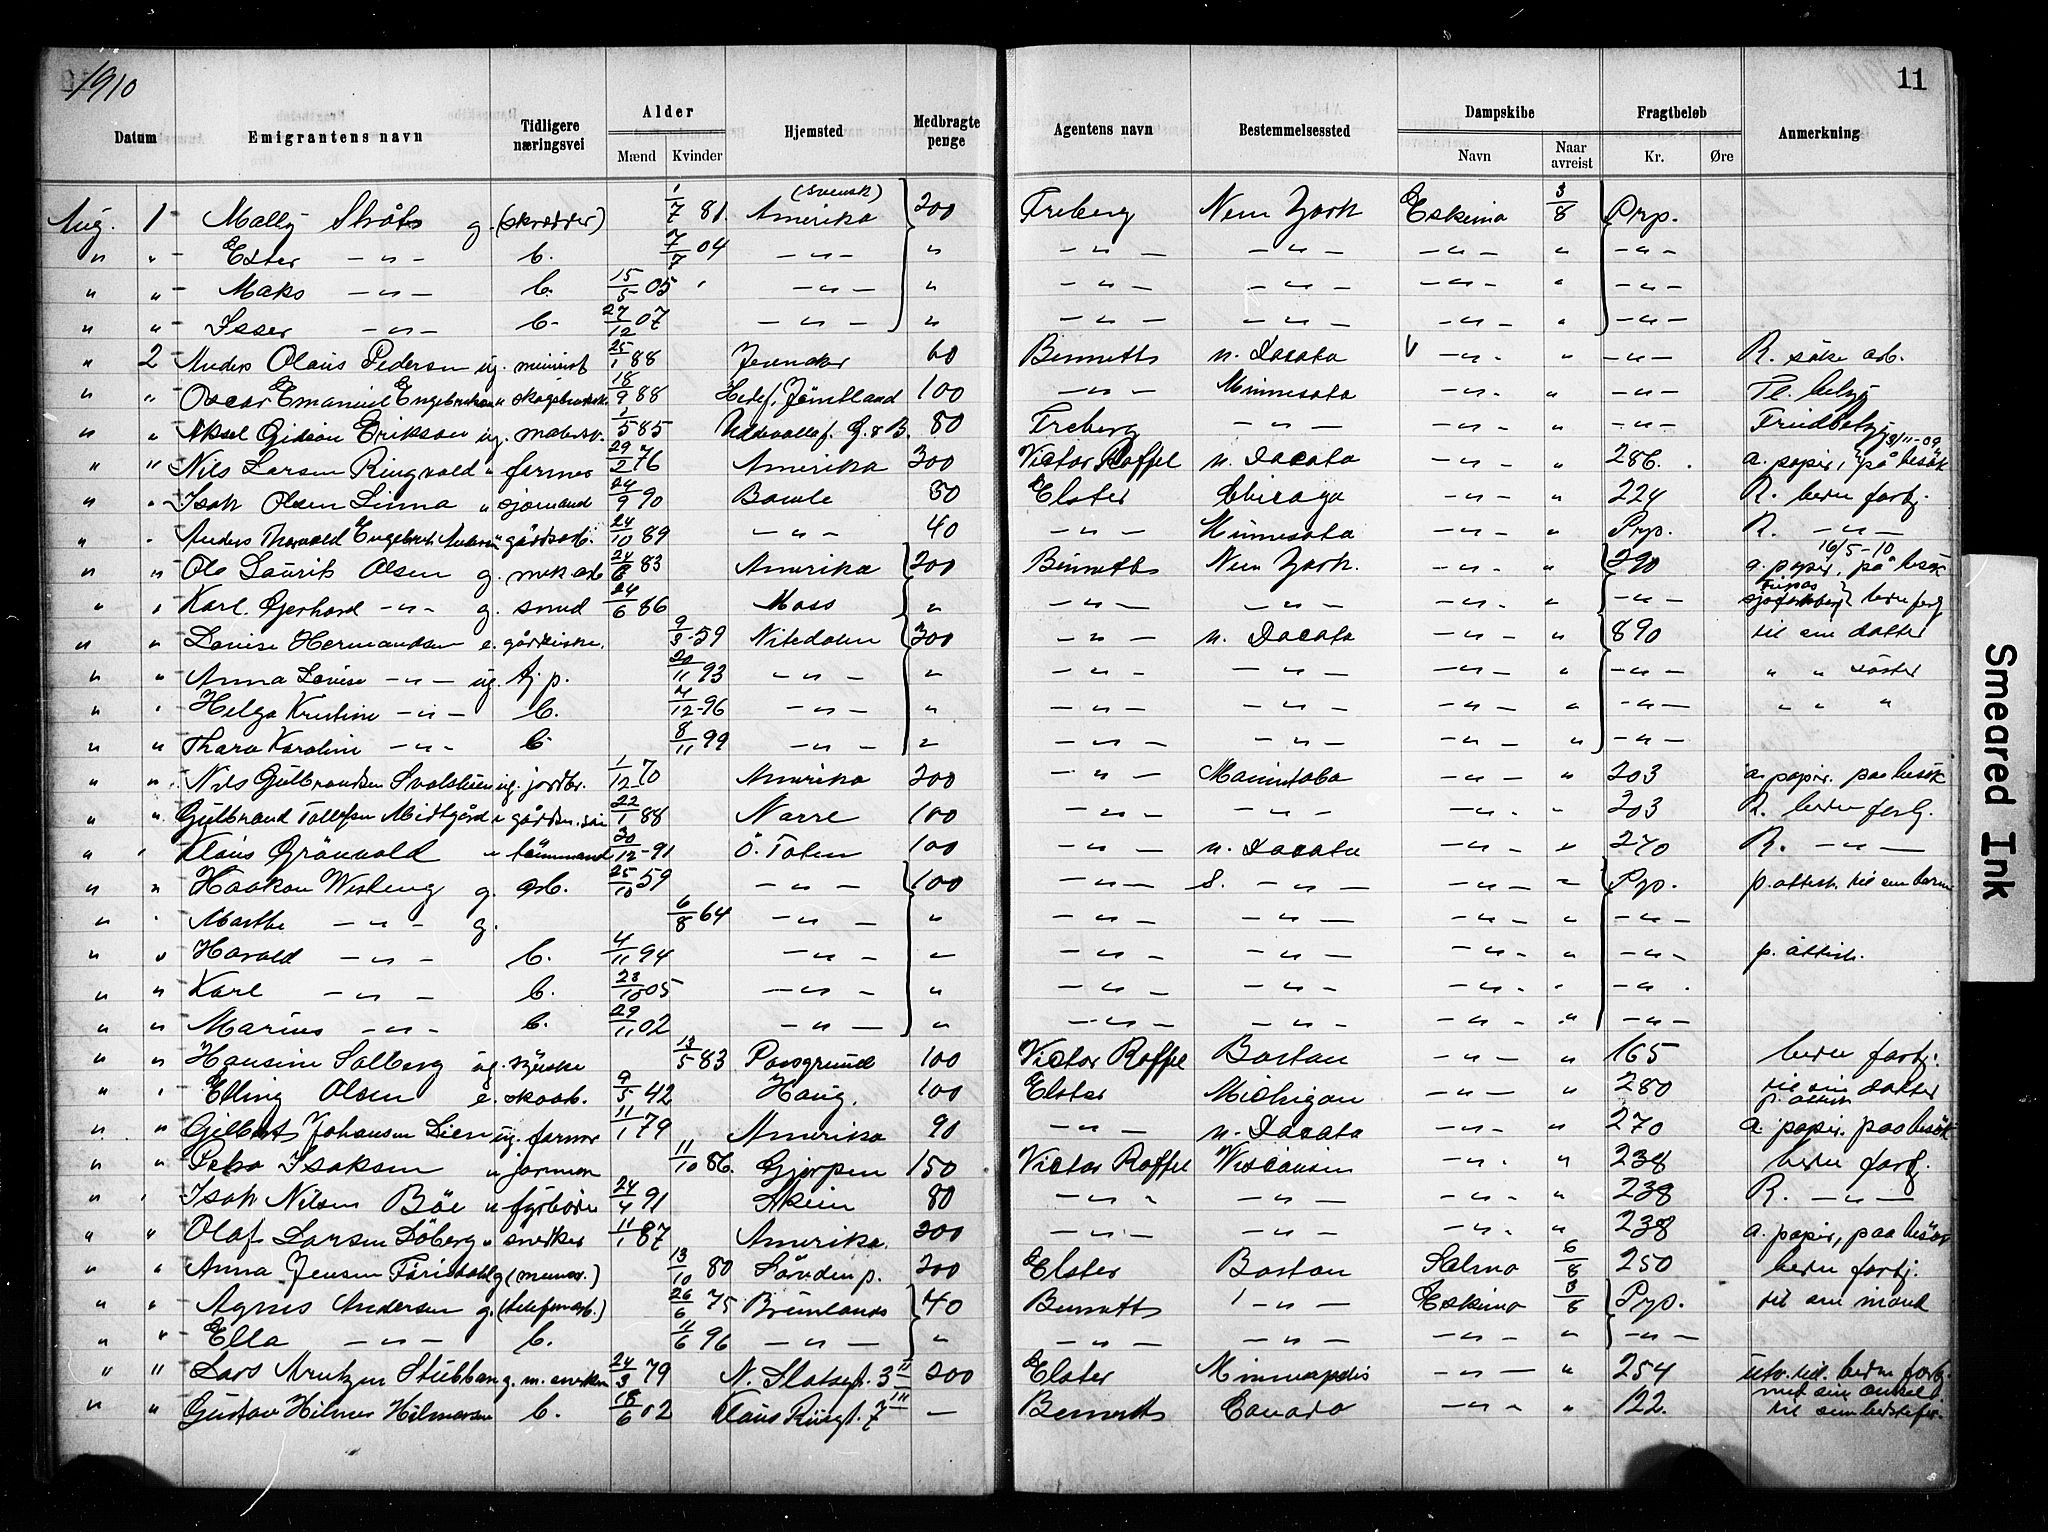 1910
11
Datum Emigrantens navn Tidligere næringsvei Alder Mænd Kvinder Hjemsted Medbragte penge Agentens navn Bestemmelsessted Dampskibe Navn Naar avreist Fragtbeløb Kr. Øre Anmerkning
Aug. 1 Mally g. (skrædder) 1/7 81. (svensk) Amerika 200 Freberg New York Eskimo 3/8 Prp.
" " Ester — " — b. 7/7 04 — " — " — " — — " — — " — " — " —
" " Maks — " — b. 15/5 05 — " — " — " — — " — — " — " — " —
" " Isser — " — b. 27/12 07 — " — " — " — — " — — " — " — " —
" 2 Anders Olaus Pedersen ug. minørist 25/1 88 Jevnaker 60 Bennetts n. Dacota — " — " — " — R. søke arb.
" " Oscar Emanuel " 18/9 88 Jämtland 100 — " — Minnesota — " — " — " —
" " Aksel Gideon Erikson ug. 1/5 85 80 Freberg — " — — " — " — " —
" " Nils Larsen Ringvold " farmer 29/2 76 Amerika 300 Victor Roffel n. Dacota — " — " 286. a. papir, på besök 3/11-09
" " Isak Olsen Linna " sjömand 24/9 90 Bamle 50 Elster Chicago — " — " 224 R. bedre fortj.
" " Anders Thorvald Engebreth " gårdsarb. 24/10 89 — " — 40 — " — Minnesota — " — " Prp. R. — " —
" " Ole Laurits Olsen g. mek arb 24/6 83 Amerika 200 Bennetts New York. — " — " 290 a. papir, på besök 16/5-10
" " Karl Gerhard — " — g. smed 24/6 86 Moss " — " — — " — — " — " — " — bedre fortj
" " Lovise Hermandsen e. 9/3-59 Nitedalen 300 — " — n. Dacota — " — " 890 til sin datter
" " Anna Lovise — " — ug. tj.p. 20/11 93 — " — " — " — — " — — " — " — " — " " söster
" " Helga Kristine — " — b. 4/12-96 — " — " — " — — " — — " — " — " — " " "
" " Thora Karoline — " — b. 8/11 99 — " — " — " — — " — — " — " — " —
" " Nils Gulbrandsen ug. jordbr. 1/12 70 Amerika 200 — " — Manitoba — " — " 203 a. papir. paa besök
" " Gulbrand Tollefsen Midtgård " 22/1 88 Narre 100 — " — — " — — " — " 203 R. bedre fortj.
" " Klaus Grönvold " tömmermand 30/12-91 Ö. Toten 100 — " — n. Dacota — " — " 270 R. — " —
" " Haakon g. arb. 25/10 59 — " — 100 — " — S. — " — — " — " Prp. p. attest. til sin
" " Marthe — " — g. 6/8 64 — " — " — " — — " — — " — " — " —
" " Harald — " — b. 4/11 94 — " — " — " — — " — — " — " — " — p. attest.
" " Karl — " — b. 28/10 05 — " — " — " — — " — — " — " — " —
" " Marius — " — b. 29/11 02 — " — " — " — — " — — " — " — " —
" " Hansine Solberg ug. syerske 13/5 83 Porsgrund 100 Victor Roffel Boston — " — " 165 bedre fortj.
" " Elling Olsen e. skoarb. 9/5 42 Haug. 100 Elster Michigan — " — " 280 til sin datter p. attest
" " Gilbert Johansen Lien ug. farmer 11/1 79 Amerika 90 — " — n. Dacota — " — " 270 a. papir. paa besök
" " Isaksen " 11/10 86. Gjerpen 150 Victor Roffel Wisconsin — " — " 238 bedre fortj.
" " Isak Nilsen Böe " fyrböter 24/4 91 Skien 80 — " — — " — — " — " 238 R. — " —
" " Olaf Larsen " snekker 11/1 87 Amerika. 200 — " — — " — — " — " 238 a. papir, paa besök
" " Anna Jensen g. 13/10 80 200 Elster Boston Salmo 6/8 250 bedre fortj.
" " Agnes Andersen g. (telefonarb.) 26/6 75 Brunlanes 40 Bennetts — " — Eskimo 3/8 Prp. til sin mand
" " Ella — " — b. 11/6 96 — " — " — " — — " — — " — " — " —
" " Lars Stubban g. m. snekker 24/3 79 N. Slotsgt. 3 II 200 Elster Minneapolis — " — " 254 bedre fortj.
" " Gustav Hilmer Hilmersen b. 18/6 02 Claus Riisgt. 7 III — Bennetts Canada — " — " 122. med sin onkel til sin bedstefar.
Smeared Ink